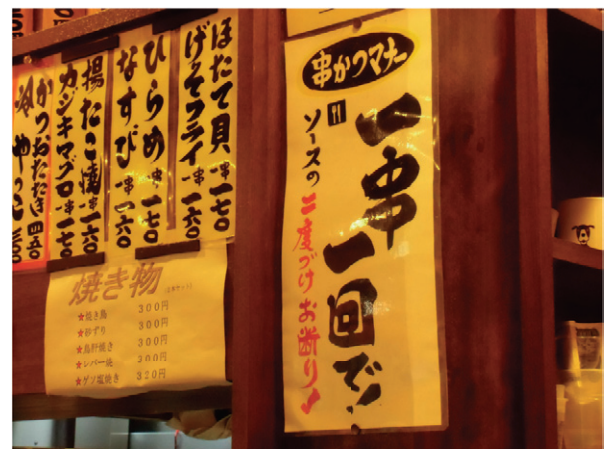 串かつマナー
一串一回で!
ソースの二度づけお断り!
ほたて貝 一串 一七〇
げそフライ 一串 一六〇
ひらめ 一串 一七〇
なすび 一串 一六〇
揚たこ焼 一串 一六〇
カジキマグロ 一串 一七〇
かつおたたき 四五〇
冷やっこ
焼き物
★焼き鳥 300円
★砂ずり 300円
★鳥肝焼き 300円
★レバー焼 300円
★ゲソ塩焼き 320円